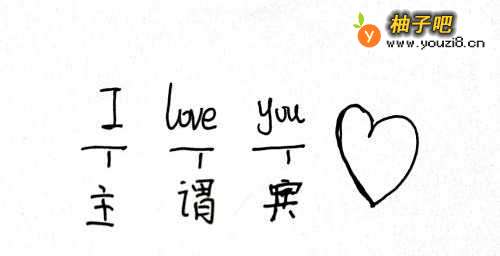 柚子吧
www.youzi8.cn
I love you
主 谓 宾